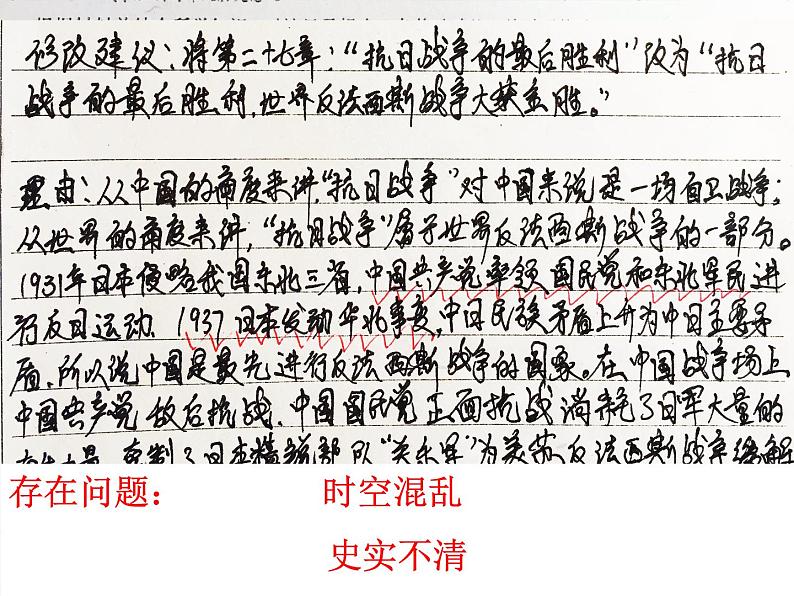 修改建议：将第二十七章：“抗日战争的最后胜利”改为“抗日
战争的最后胜利，世界反法西斯战争大获全胜。”
理由：从中国的角度来讲，“抗日战争”对中国来说是一场自卫战争；
从世界的角度来讲，“抗日战争”属于世界反法西斯战争的一部分。
1931年日本侵略我国东北三省，中国共产党率领国民党和东北军民进
行反日运动，1937日本发动华北事变，中日民族矛盾上升为中日主要矛
盾，所以说中国是最先进行反法西斯战争的国家。在中国战争场上
中国共产党敌后抗战，中国国民党正面抗战消耗了日军大量的
牵制了日本精锐部队“关东军”为美苏反法西斯战争缓解
存在问题： 时空混乱
史实不清